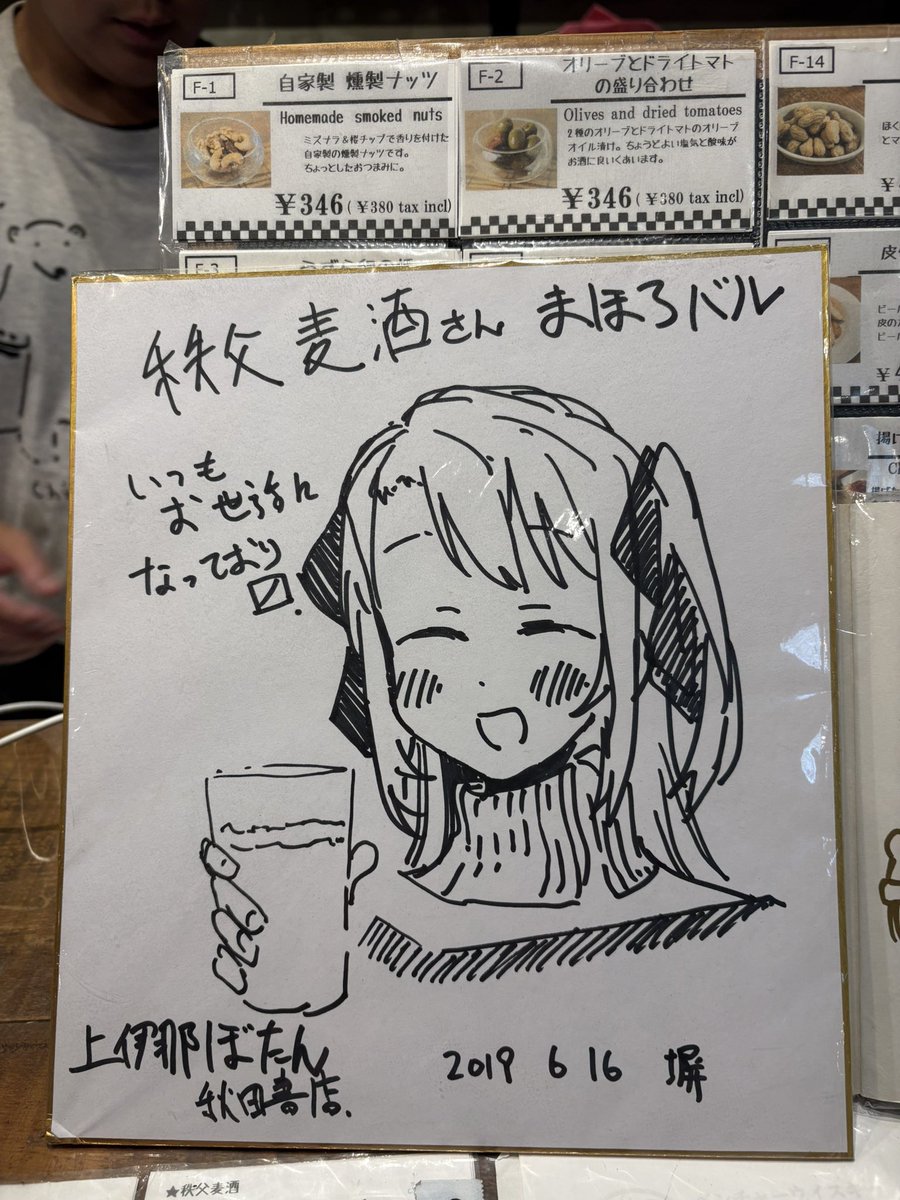 F-1
自家製 燻製ナッツ
Homemade smoked nuts
ミズナラ&桜チップで香りを付けた
自家製の燻製ナッツです。
ちょっとしたおつまみに。
¥346(¥380 tax incl)
F-2
オリーブとドライトマト
の盛り合わせ
Olives and dried tomatoes
2種のオリーブとドライトマトのオリーブ
オイル漬け。ちょうどよい塩気と酸味が
お酒に良いくあいます。
¥346(¥380 tax incl)
F-14
F-3
秩父麦酒さん まほろバル
いつも
お世話に
なっており
〼.
上伊那ぼたん
秋田書店.
2019 6 16 塀
★秩父麦酒